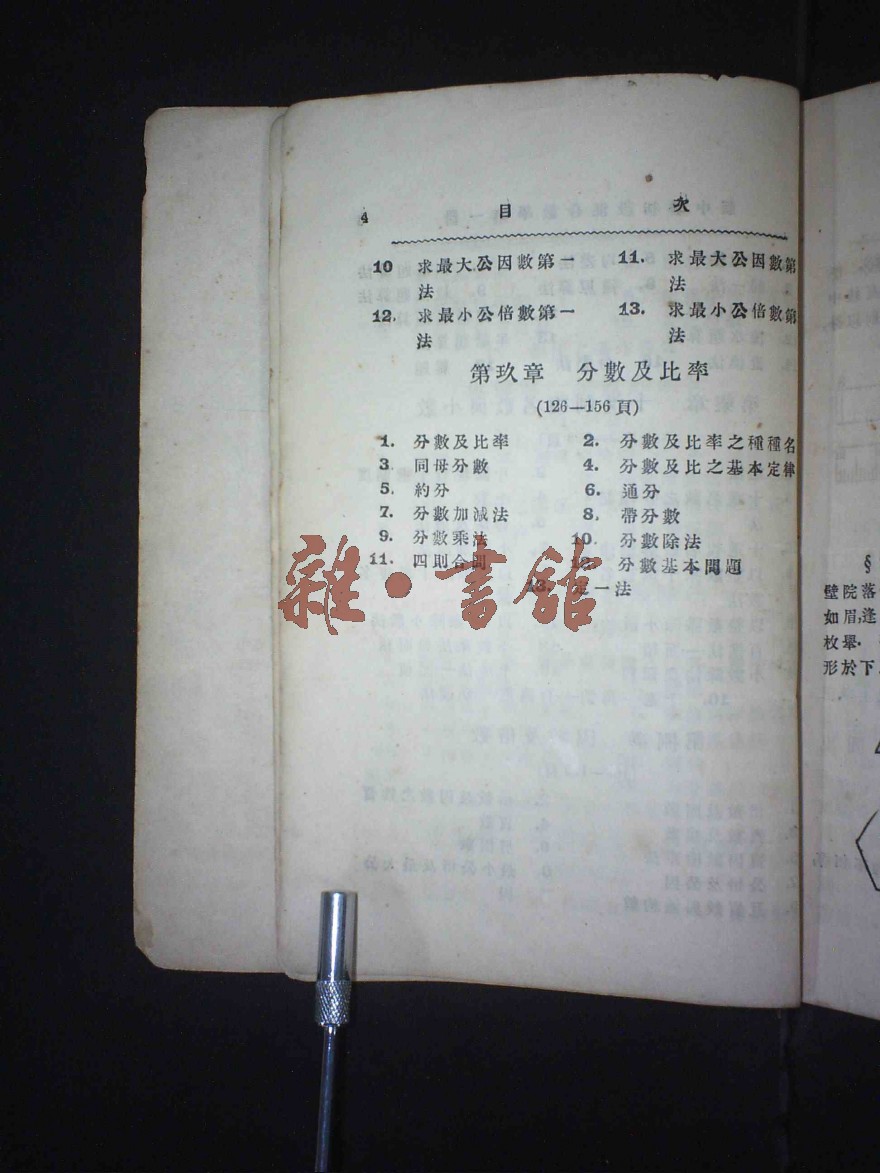 4 目 次
10 求最大公因數第一法 11. 求最大公因數第
法
12. 求最小公倍數第一法 13. 求最小公倍數第
法
第玖章 分數及比率
(126—156頁)
1. 分數及比率 2. 分數及比率之種種名
3. 同母分數 4. 分數及比之基本定律
5. 約分 6. 通分
7. 分數加減法 8. 帶分數
9. 分數乘法 10. 分數除法
11. 四則合問 12. 分數基本問題
13. 定一法
雜·書館
§
壁院落
如眉,逢
枚舉.
形於下.